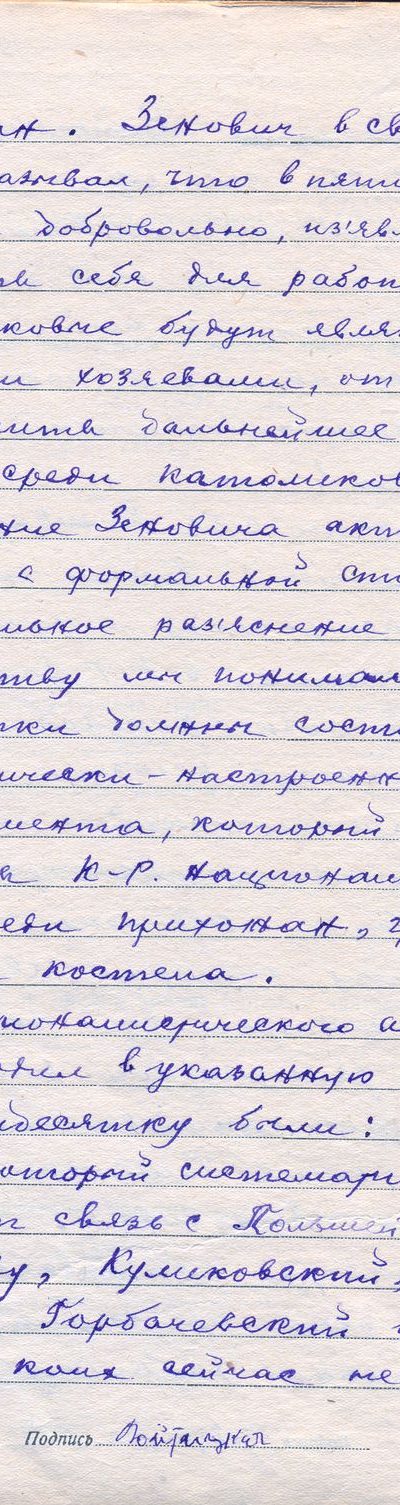 ан. Зенович в св
азывал, что в пяти
добровольно, из'явл
ив себя для работ
ковые будут явля
и хозяевами, от
ить дальнейшее
среди католиков
ние Зеновича акт
с формальной сто
льное раз'яснение
тву мы понимали
тки должны состо
ически-настроенн
мента, который
а К-Р. национал
еди прихожан,
костела.
ионалистического а
одил в указанную
десятку были:
оторый системати
л связь с Польшей
у, Куликовский,
Горбачевский
коих сейчас не
Подпись